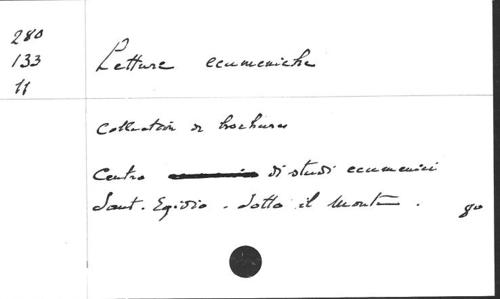 280
133
11
Letture ecumeniche
Collection de brochures
Centro di studi ecumenici
Sant. Egidio. Sotto il Monte.
go